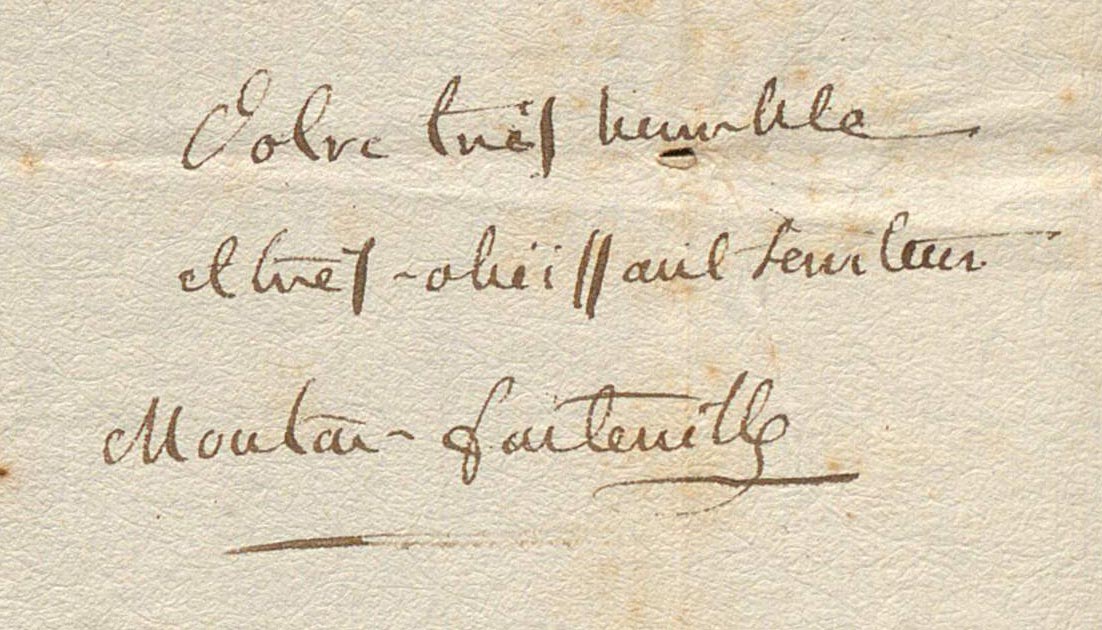 Votre très humble
et très-obéissant serviteur
Mouton-fontenille